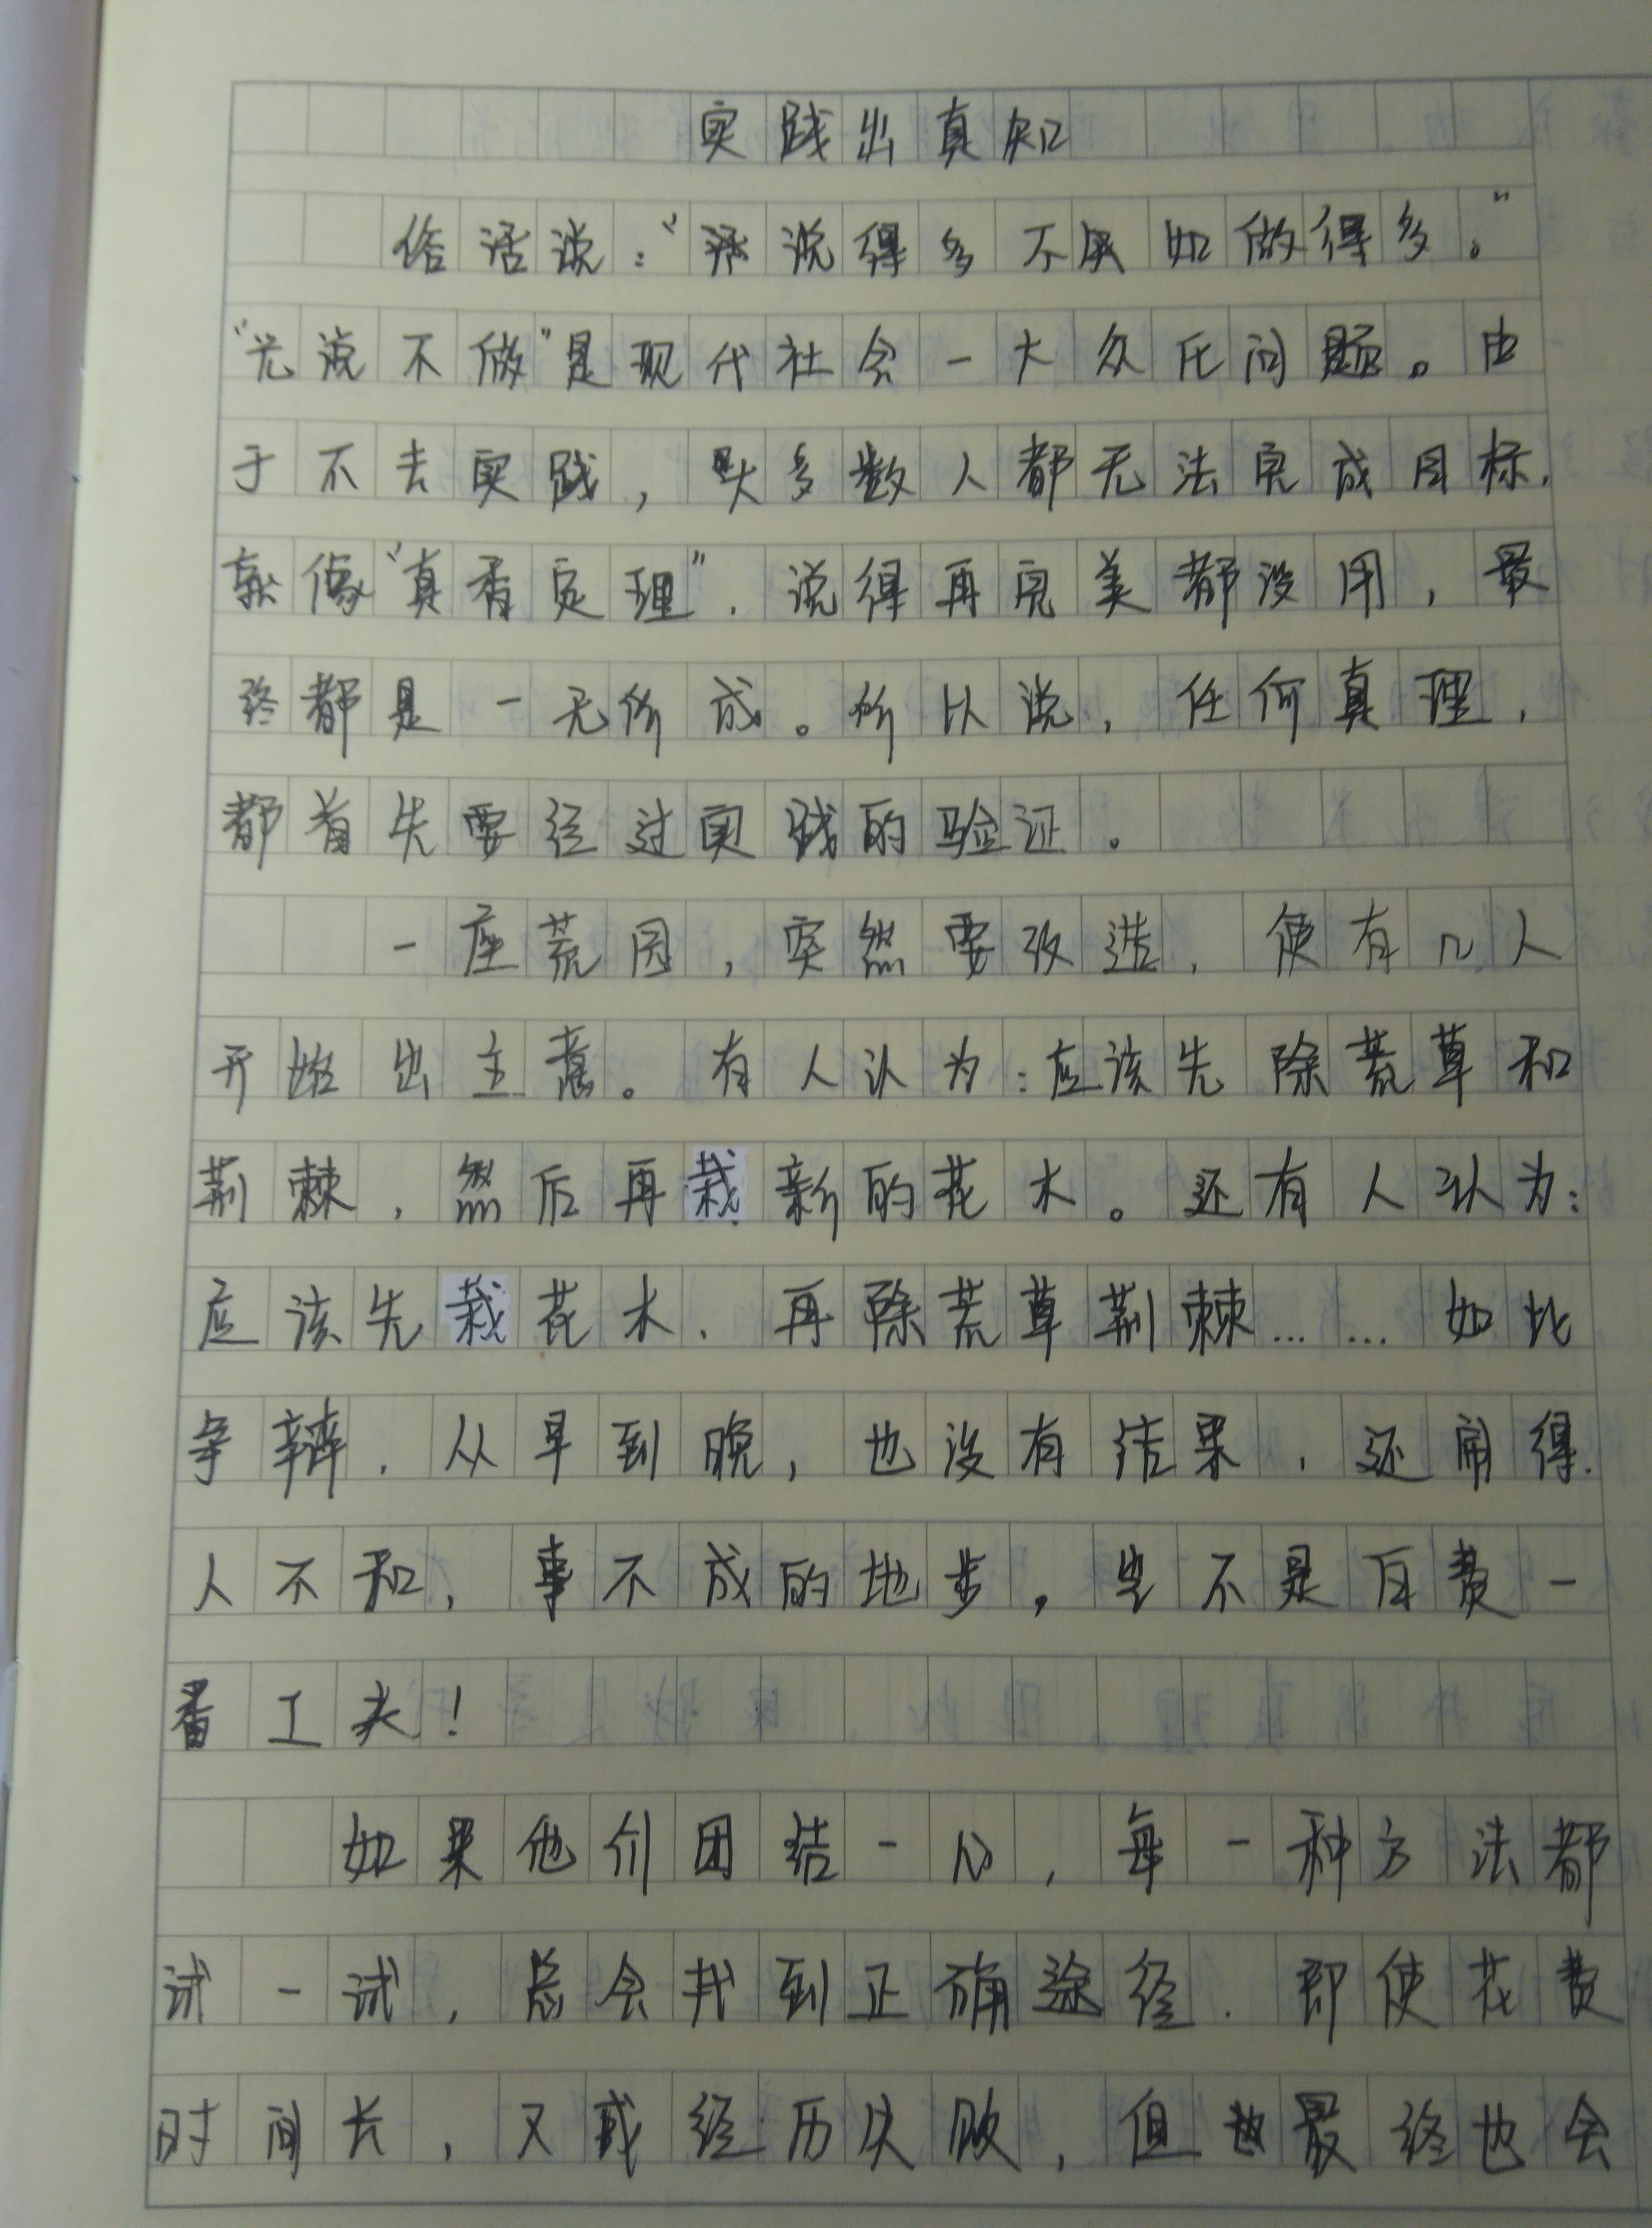 实践出真知
俗话说：“说得多不如做得多。”
“光说不做”是现代社会一大众化问题。由
于不去实践，大多数人都无法完成目标，
就像“真香定理”，说得再完美都没用，最
终都是一无所成。所以说，任何真理，
都首先要经过实践的验证。
一座荒园，突然要改造，便有几人
开始出主意。有人认为：应该先除荒草和
荆棘，然后再栽新的花木。还有人认为：
应该先栽花木，再除荒草荆棘……如此
争辩，从早到晚，也没有结果，还闹得
人不和，事不成的地步，岂不是白费一
番工夫！
如果他们团结一心，每一种方法都
试一试，总会找到正确途径，即使花费
时间长，又或经历失败，但最终也会